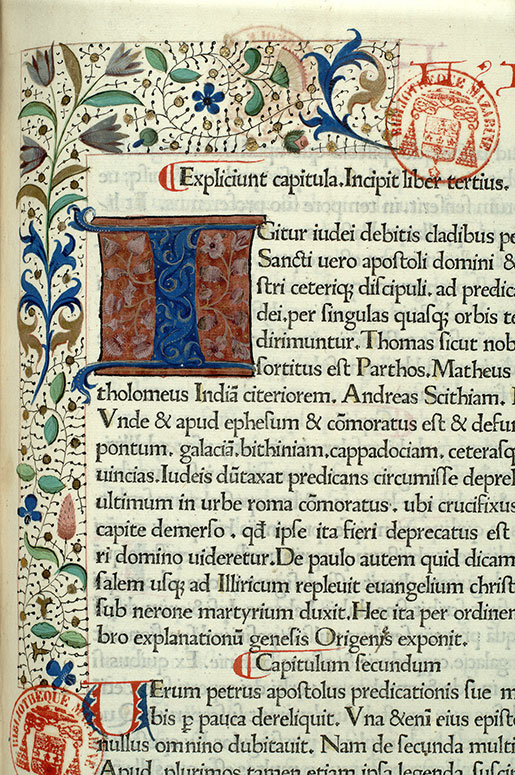 Expliciunt capitula. Incipit liber tertius.
IGitur iudei debitis cladibus pe
Sancti uero apostoli domini &
stri ceteriq; discipuli. ad predica
dei. per singulas quasq; orbis te
dirimuntur. Thomas sicut nob
sortitus est Parthos. Matheus
tholomeus Indiã citeriorem. Andreas Scithiam.
Vnde & apud ephesum & cõmoratus est & defu
pontum. galaciã. bithiniam. cappadociam. ceterasq
uincias. Iudeis dũtaxat predicans circumisse deprel
ultimum in urbe roma cõmoratus. ubi crucifixus
capite demerso. qđ ipse ita fieri deprecatus est
ri domino uideretur. De paulo autem quid dicam
salem usq; ad Illiricum repleuit euangelium christ
sub nerone martyrium duxit. Hec ita per ordinem
bro explanationũ genesis Origenis exponit.
Capitulum secundum
VErum petrus apostolus predicationis sue m
bis ꝑ pauca dereliquit. Vna &eni eius episto
nullus omnino dubitauit. Nam de secunda multi
Apud plurimos tamen etiam ipsa legenda suscip
BIBLIOTHEQUE MAZARINE
BIBLIOTHEQUE MA